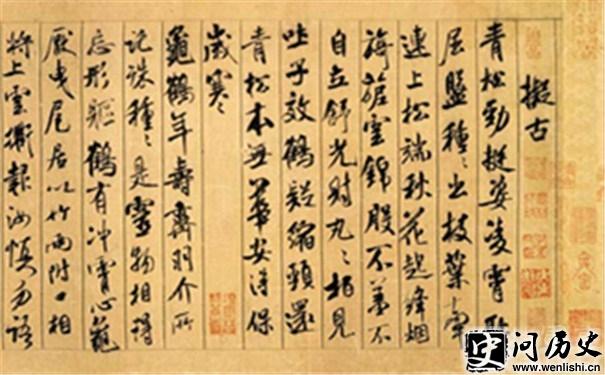 擬古
青松勁挺姿凌霄恥
屈盤種種出枝葉牽
連上松端秋花起絳烟
旖旎雲錦殷不羞不
自立舒光射丸丸栢見
吐子效鶴疑縮頸還
青松本無華安得保
歲寒
龜鶴年壽齊羽介所
託殊種種是靈物相得
忘形軀鶴有冲霄心龜
厭曳尾居以竹兩附口相
將上雲衢報汝慎勿語
史 问历史
www.wenlishi.cn